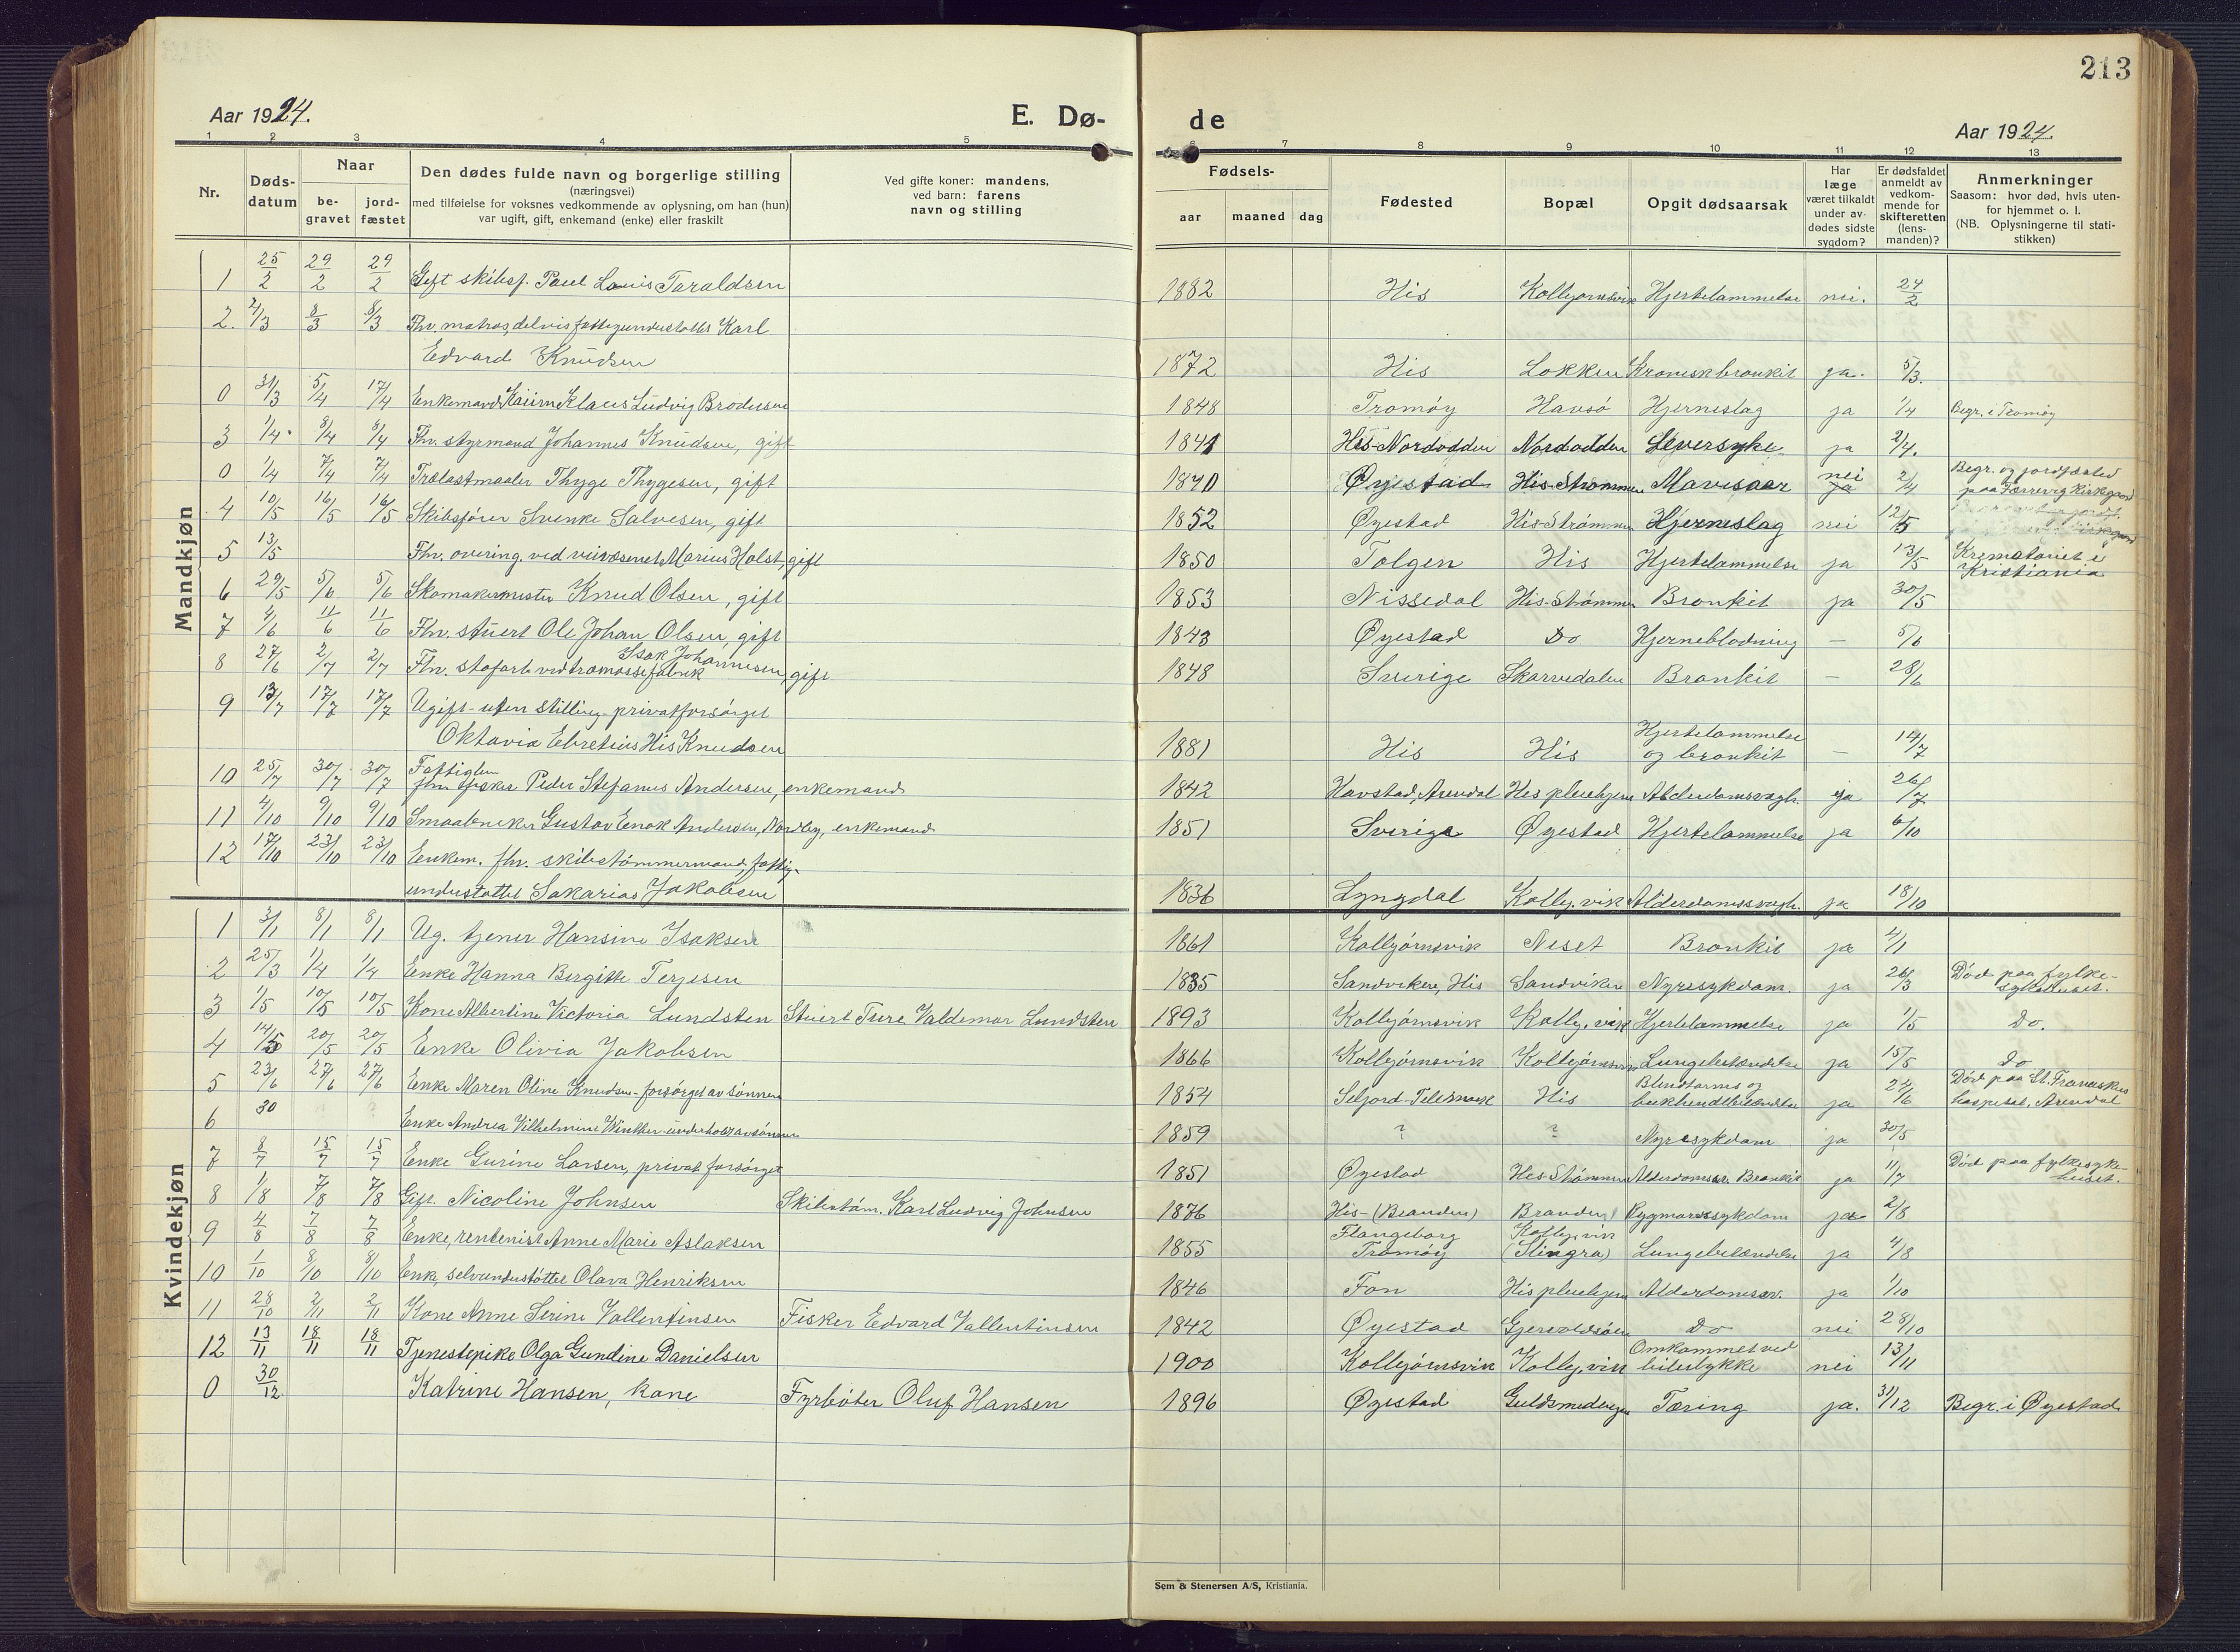 213
Aar 1924.
E. Dø-
de
Aar 1924.
1 2 3 4 5 6 7 8 9 10 11 12 13
Nr.
Døds-
datum
Naar
be-
gravet
jord-
fæstet
Den dødes fulde navn og borgerlige stilling
(næringsvei)
med tilføielse for voksnes vedkommende av oplysning, om han (hun)
var ugift, gift, enkemand (enke) eller fraskilt
Ved gifte koner: mandens,
ved barn: farens
navn og stilling
Fødsels-
aar maaned dag
Fødested
Bopæl
Opgit dødsaarsak
Har
læge
været tilkaldt
under av-
dødes sidste
sygdom?
Er dødsfaldet
anmeldt av
vedkom-
mende for
skifteretten
(lens-
manden)?
Anmerkninger
Saasom: hvor død, hvis uten-
for hjemmet o. l.
(NB. Oplysningerne til stati-
stikken)
Mandkjøn
1 25/2 29/2 29/2 Gift skibsf. Paul Louis Taraldsen 1882 His Hjertelammelse nei. 24/2
2. 8/3 8/3 Fhv. matros, delvis fattigunderstøttet Karl
Edvard Knudsen 1872 His Løkken Kronisk bronkit ja. 5/3.
0 31/3 5/4 17/4 Enkemand Klaus Ludvig Brodersen 1848 Tromøy Havsö Hjerneslag ja 1/4 Begr. i Tromöy
3 1/4 8/4 8/4 Fhv. styrmand Johannes Knudsen, gift 1841 His-Nordodden Nordodden Leversyke ja 2/4.
0 1/4 7/4 7/4 Trælastmaaler Thyge Thygesen, gift 1840 Øyestad His-Strømmen Mavesaar nei ja 2/4 Begr. og jordfæsted
paa Færrevig Kirkegaard
4 10/5 16/5 16/5 Skibsfører Svenke Salvesen, gift 1852 Øyestad His-Strømmen Hjerneslag nei 12/5
5 13/5 Fhv. overing. ved veivæsenet Marius Holst, gift 1850 Tolgen His Hjertelammelse ja 13/5 Krematoriet i
Kristiania
6 29/5 5/6 5/6 Skomakermester Knud Olsen, gift 1853 Nissedal His-Strømmen Bronkit ja 30/5
7 4/6 11/6 11/6 Fhv. stuert Ole Johan Olsen, gift 1843 Øyestad Do Hjerneblødning — 5/6
8 27/6 2/7 2/7 Fhv. ved træmassefabrik Isak Johannesen, gift 1848 Sverige Skarvedalen Bronkit — 28/6
9 13/7 17/7 17/7 Ugift - uten stilling - privatforsørget
Oktavia Ebretius His Knudsen 1881 His His Hjertelammelse
og bronkit — 14/7
10 25/7 30/7 30/7 Fattiglem
fhv. fisker Peder Stefanus Andersen, enkemand 1842 Havstad, Arendal His pleiehjem Alderdomssvagh. ja 26/7
11 4/10 9/10 9/10 Smaabruker Gustav Enok Andersen, Nordby, enkemand 1851 Sverige Øyestad Hjertelammelse ja 6/10
12 17/10 23/10 23/10 Enkem. fhv. skibstømmermand, fattig-
understøttet Sakarias Jakobsen 1836 Lyngdal Kolbj. vik Alderdomssvagh. ja 18/10
Kvindekjøn
1 3/1 8/1 8/1 Ug. tjener Hansine Isaksen 1861 Kolbjørnsvik Neset Bronkit ja 4/1
2 25/3 1/4 1/4 Enke Hanna Bergitte Terjesen 1835 Sandviken, His Sandviken Nyresykdom. ja 26/3 Död paa fylke-
sykehuset.
3 1/5 10/5 10/5 Kone Albertine Victoria Lundsten Stuert Ture Valdemar Lundsten 1893 Kolbjørnsvik Kolbj. vik Hjertelammelse ja 1/5 Do.
4 14/5 20/5 20/5 Enke Olivia Jakobsen 1866 Kolbjørnsvik Kolbjørnsvik Lungebetændelse ja 15/5 Do
5 23/6 27/6 27/6 Enke Maren Oline Knudsen - forsørget av sønnen 1854 Seljord - Telemark His Blindtarms og
bukhindebetændelse ja 24/6 Död paa St. Franciskus
hospital, Arendal
6 30 Enke Andrea Vilhelmine Winther - underholdt av sønnen 1859 ? ? Nyresykdom ja 30/5
7 8/7 15/7 15/7 Enke Gurine Larsen, privat forsørget 1851 Øyestad His-Strømmen Alderdomssv. Bronkit ja 11/7 Död paa fylkesyke-
huset.
8 1/8 7/8 7/8 Gift. Nicoline Johnsen Skibstøm. Karl Ludvig Johnsen 1876 His - (Branden) Branden Rygmarvssykdom ja 2/8
9 4/8 7/8 7/8 Enke, rentenist Anne Marie Aslaksen 1855 Flangeborg
Tromöy Kolbj. vik
(Slingra) Lungebetændelse ja 4/8
10 1/10 8/10 8/10 Enke, selvunderstøttet Olava Henriksen 1846 Fon His pleiehjem Alderdomssv. ja 1/10
11 28/10 2/11 2/11 Kone Anne Serine Vallentinsen Fisker Edvard Vallentinsen 1842 Øyestad Gjervoldsøen Do nei 28/10
12 13/11 18/11 18/11 Tjenestepike Olga Gundine Danielsen 1900 Kolbjørnsvik Kolbj. vik Omkommet ved
bilulykke nei 13/11
0 30/12 Katrine Hansen, kone Fyrbøter Oluf Hansen 1896 Øyestad Guldsmedengen Tæring ja. 31/12 Begr. i Øyestad
Sem & Stenersen A/S, Kristiania.